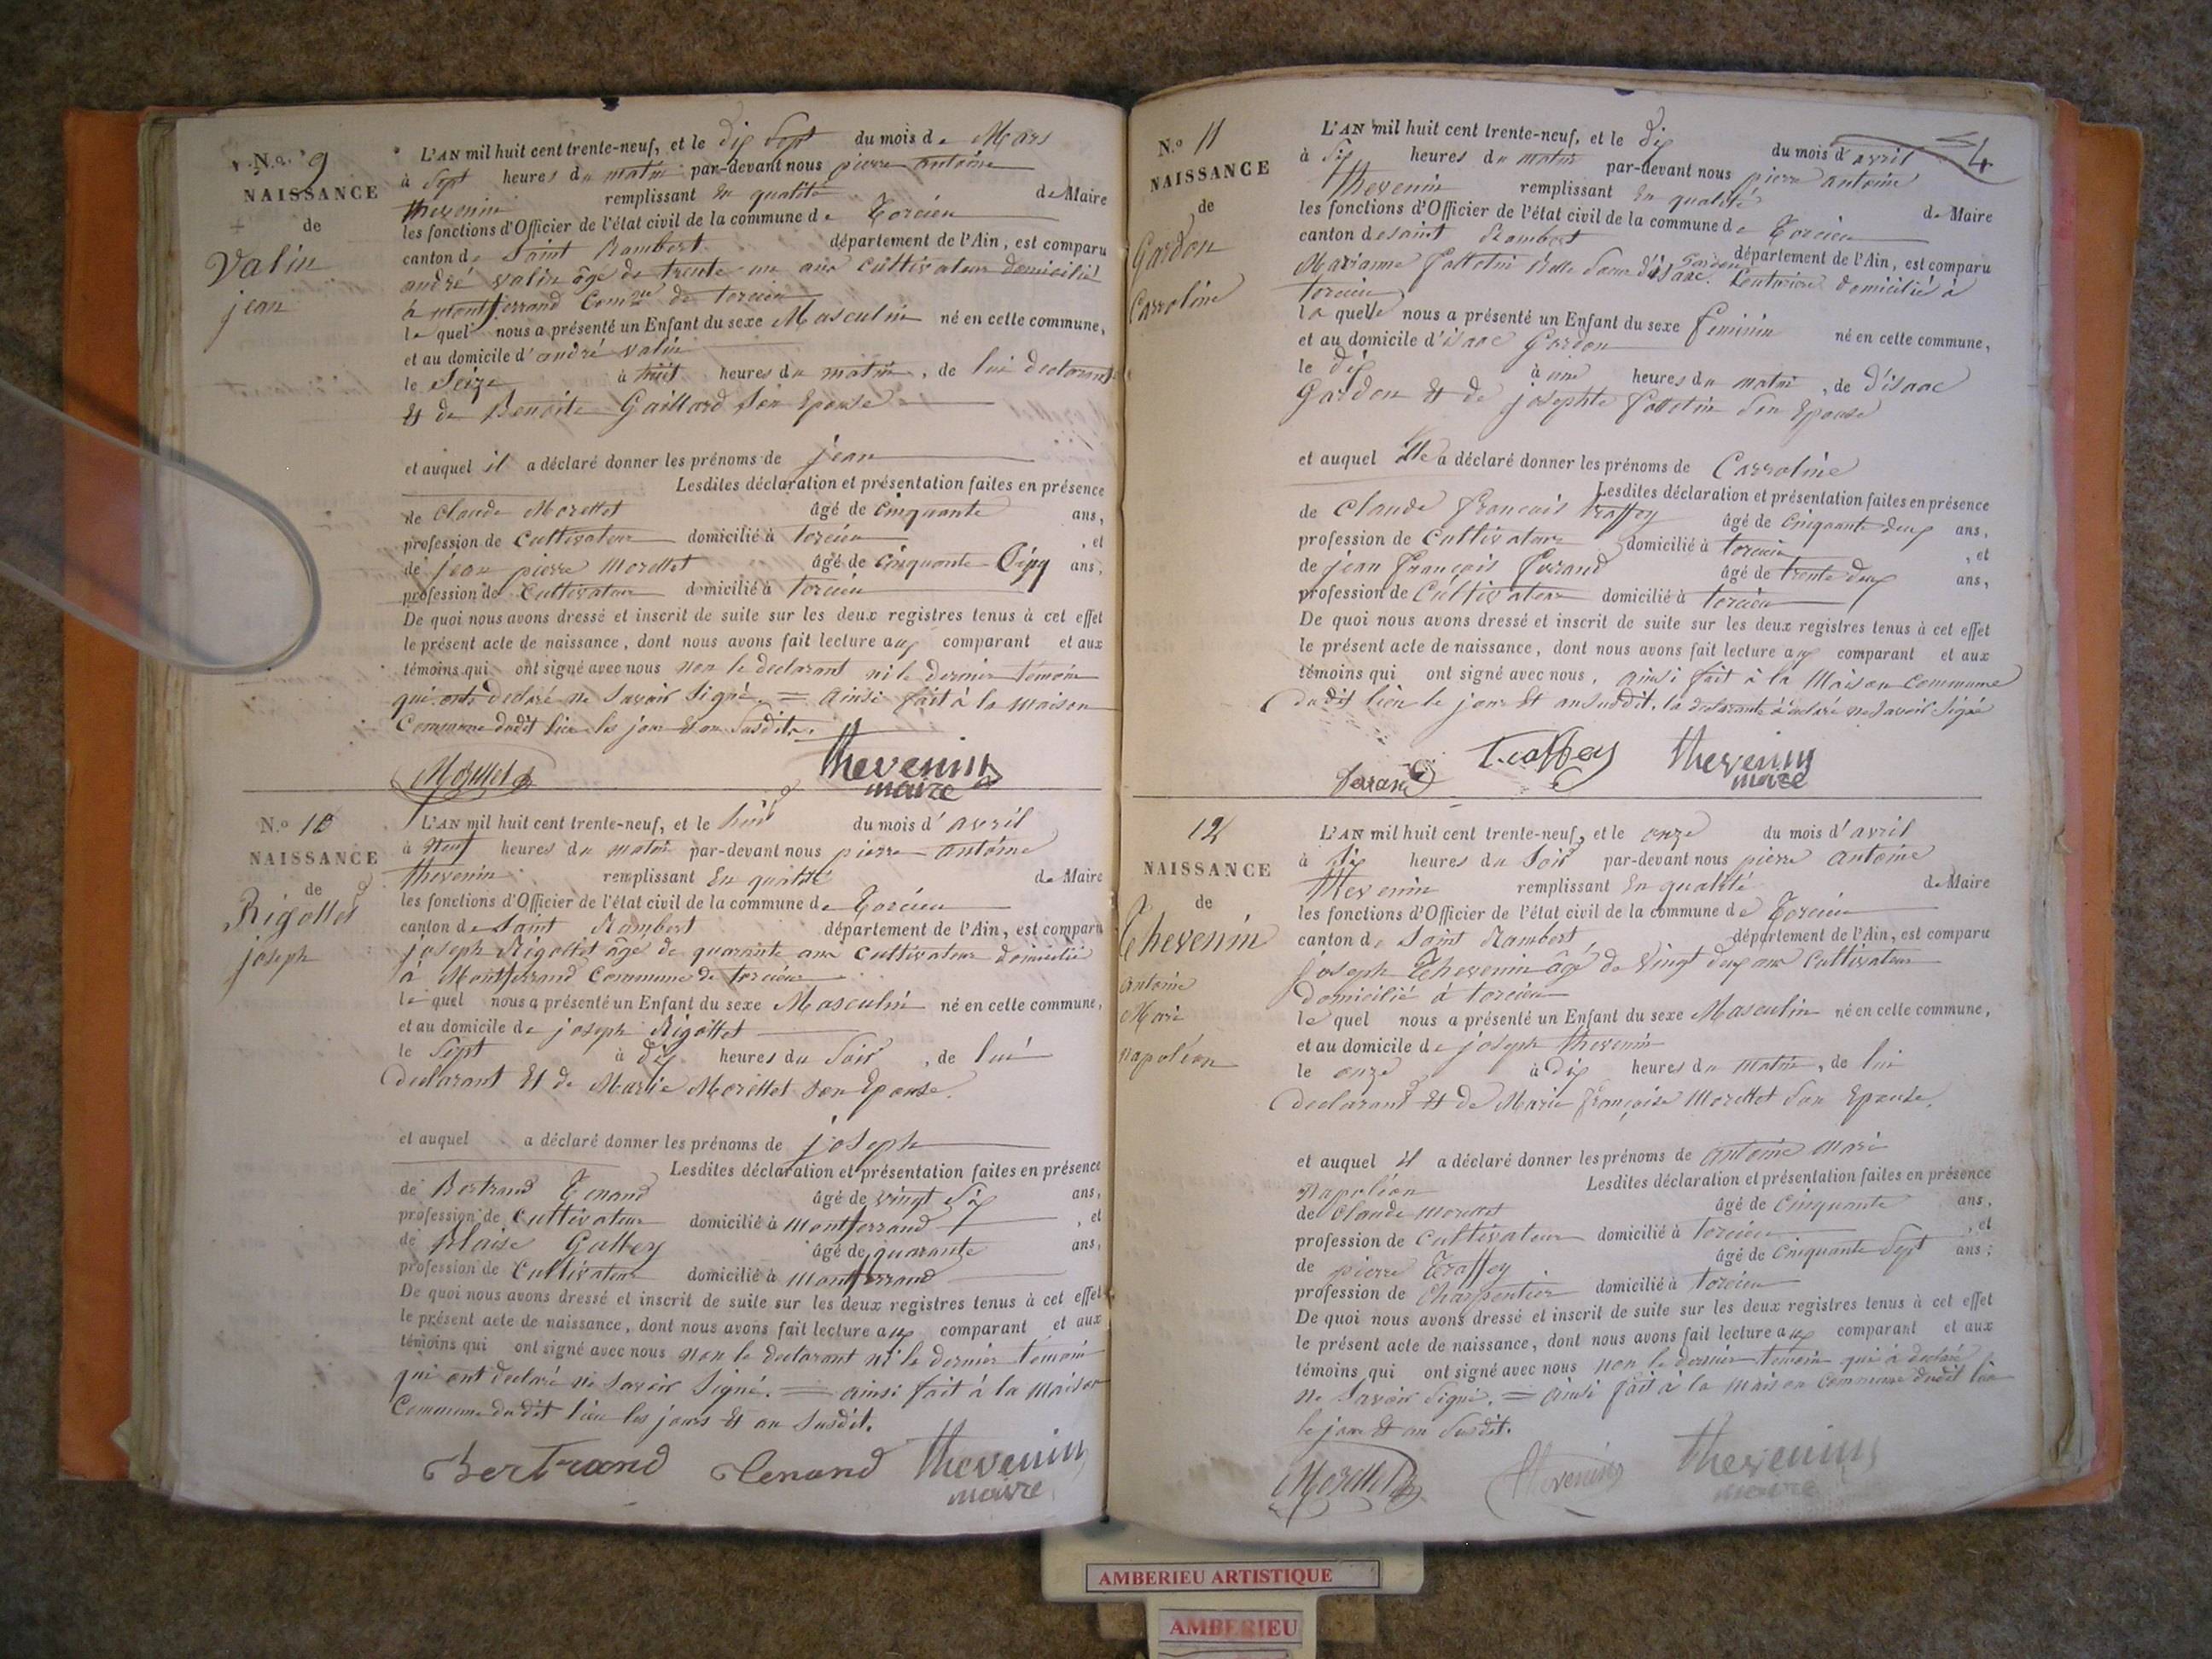 N.º 9
NAISSANCE
de
Valin
jean
L'AN mil huit cent trente-neuf, et le dix Sept du mois de Mars
à Sept heures du matin par-devant nous pierre antoine
thevenin remplissant En qualité de Maire
les fonctions d'Officier de l'état civil de la commune de Torcieu
canton de Saint Rambert département de l'Ain, est comparu
andré valin âge de trente un ans cultivateur domicilié
à montferrand Comune de torcieu
le quel nous a présenté un Enfant du sexe Masculin né en cette commune,
et au domicile d'andré valin
le Seize à huit heures du matin, de lui declarant
Et de Benoite Gaillard Son Epouse
et auquel il a déclaré donner les prénoms de jean
Lesdites déclaration et présentation faites en présence
de Claude Morettet âgé de Cinquante ans,
profession de Cultivateur domicilié à Torcieu, et
de jean pierre Morettet âgé de Cinquante Cinq ans,
profession de Cultivateur domicilié à torcieu
De quoi nous avons dressé et inscrit de suite sur les deux registres tenus à cet effet
le présent acte de naissance, dont nous avons fait lecture aux comparant et aux
témoins qui ont signé avec nous non le declarant ni le dernier temoin
qui ont declaré ne Savoir Signé. = ainsi fait à la maison
Commune dudit lieu les jour et an Susdits.
Morettet thevenin
maire
N.º 10
NAISSANCE
de
Rigottet
joseph
L'AN mil huit cent trente-neuf, et le huit du mois d'avril
à Neuf heures du matin par-devant nous pierre antoine
thevenin remplissant En qualité de Maire
les fonctions d'Officier de l'état civil de la commune de Torcieu
canton de Saint Rambert département de l'Ain, est comparu
joseph Rigottet âge de quarante ans cultivateur domicilié
à Montferrand Commune de torcieu
le quel nous a présenté un Enfant du sexe Masculin né en cette commune,
et au domicile de joseph Rigottet
le Sept à dix heures du Soir, de lui
declarant Et de Marie Morettet son Epouse.
et auquel a déclaré donner les prénoms de joseph
Lesdites déclaration et présentation faites en présence
de Bertrand Tenand âgé de vingt Six ans,
profession de Cultivateur domicilié à Montferrand, et
de Blaise Galley âgé de quarante ans,
profession de Cultivateur domicilié à Montferrand
De quoi nous avons dressé et inscrit de suite sur les deux registres tenus à cet effet
le présent acte de naissance, dont nous avons fait lecture aux comparant et aux
témoins qui ont signé avec nous non le declarant ni le dernier temoin
qui ont declaré ne Savoir Signé. = ainsi fait à la Maison
Commune dudit lieu les jours Et an Susdit.
Bertrand Tenand thevenin
maire
4
N.º 11
NAISSANCE
de
Gardon
Carroline
L'AN mil huit cent trente-neuf, et le dix du mois d'avril
à Six heures du matin par-devant nous pierre antoine
thevenin remplissant En qualité de Maire
les fonctions d'Officier de l'état civil de la commune de Torcieu
canton de saint Rambert département de l'Ain, est comparu
Marianne Belle Soeur d'isaac Gardon domicilié à
torcieu
la quelle nous a présenté un Enfant du sexe feminin né en cette commune,
et au domicile d'isaac Gardon
le dix à une heures du matin, de d'isaac
Gardon Et de josephte Son Epouse
et auquel Elle a déclaré donner les prénoms de Carroline
Lesdites déclaration et présentation faites en présence
de Claude francois traffey âgé de Cinquante deux ans,
profession de Cultivateur domicilié à torcieu, et
de jean francois ferrand âgé de trente deux ans,
profession de Cultivateur domicilié à torcieu
De quoi nous avons dressé et inscrit de suite sur les deux registres tenus à cet effet
le présent acte de naissance, dont nous avons fait lecture aux comparant et aux
témoins qui ont signé avec nous, ainsi fait à la Maison Commune
dudit lieu le jour Et an Susdit. la declarante à declaré ne Savoir Signé
ferrand Traffey thevenin
maire
12
NAISSANCE
de
Thevenin
Antoine
Mari
Napoléon
L'AN mil huit cent trente-neuf, et le onze du mois d'avril
à Six heures du Soir par-devant nous pierre antoine
thevenin remplissant En qualité de Maire
les fonctions d'Officier de l'état civil de la commune de Torcieu
canton de Saint Rambert département de l'Ain, est comparu
joseph Thevenin âgé de vingt deux ans Cultivateur
domicilié à torcieu
le quel nous a présenté un Enfant du sexe Masculin né en cette commune,
et au domicile de joseph thevenin
le onze à dix heures du matin, de lui
declarant Et de Marie françoise Morettet Son Epouse.
et auquel il a déclaré donner les prénoms de antoine Mari
Napoléon Lesdites déclaration et présentation faites en présence
de Claude morettet âgé de Cinquante ans,
profession de Cultivateur domicilié à torcieu, et
de pierre Traffey âgé de Cinquante Sept ans;
profession de Charpentier domicilié à torcieu
De quoi nous avons dressé et inscrit de suite sur les deux registres tenus à cet effet
le présent acte de naissance, dont nous avons fait lecture aux comparant et aux
témoins qui ont signé avec nous non le dernier temoin qui à declaré
ne Savoir Signé. = ainsi fait à la maison commune dudit lieu
le jour Et an Susdit.
Morettet thevenin thevenin
maire
AMBERIEU ARTISTIQUE
AMBERIEU